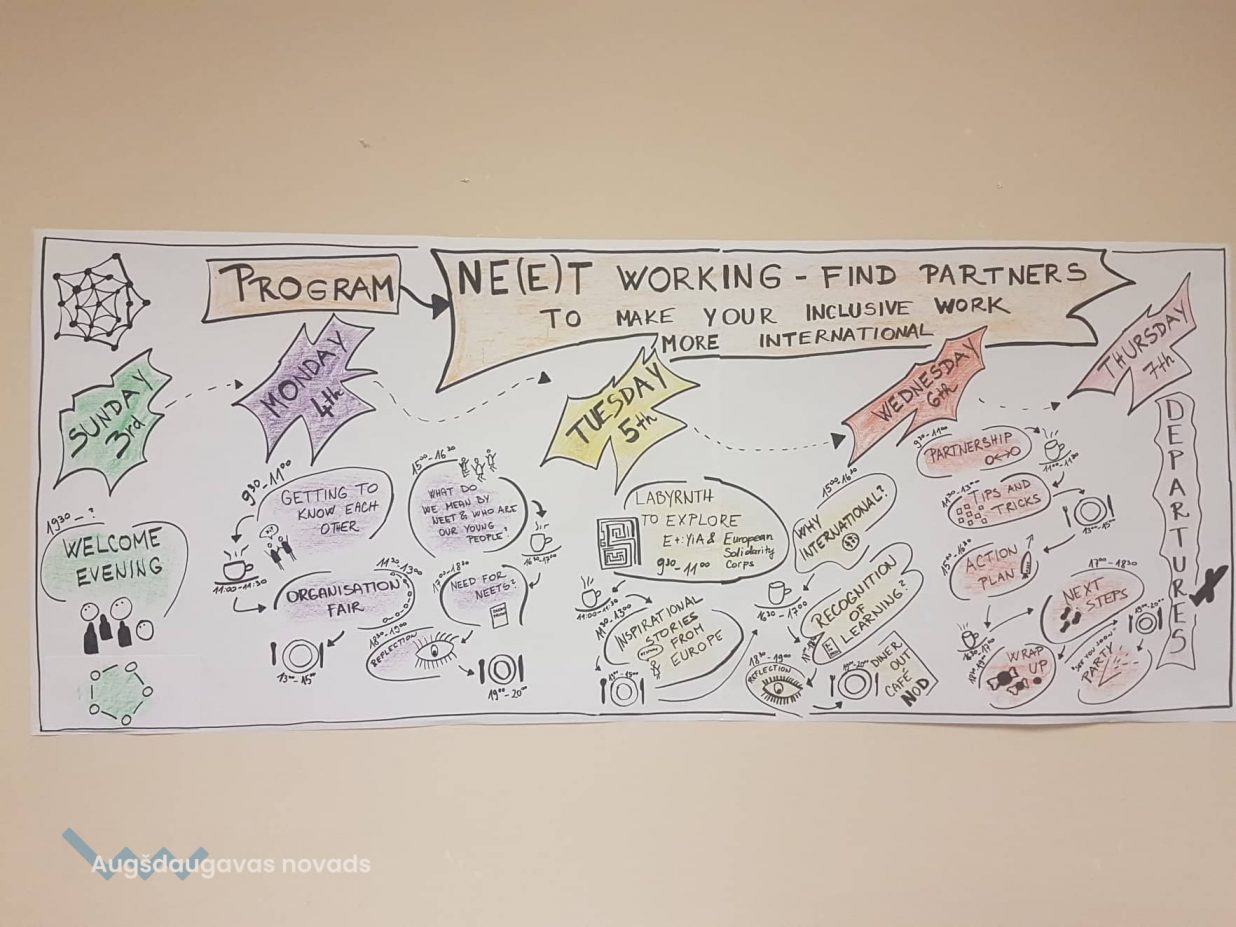 PROGRAM
NE(E)T WORKING - FIND PARTNERS
TO MAKE YOUR INCLUSIVE WORK
MORE INTERNATIONAL
SUNDAY
3rd
1930-?
WELCOME
EVENING
MONDAY
4th
930-1100
GETTING TO
KNOW EACH
OTHER
11:00-11:30
1130-1300
ORGANISATION
FAIR
1300-1500
1500-1630
WHAT DO
WE MEAN BY
NEET & WHO ARE
OUR YOUNG
PEOPLE?
1630-1700
1700-1830
NEED FOR
NEETS?
1830-1900
REFLECTION
1900-2000
TUESDAY
5th
LABYRNTH
TO EXPLORE
E+:YiA & European
Solidarity
Corps
930-1100
11:00-11:30
1130-1300
INSPIRATIONAL
STORIES
FROM
EUROPE
1300-1500
1500-1630
WHY
INTERNATIONAL?
1630-1700
RECOGNITION
OF
LEARNING?
1830-1900
REFLECTION
1900-2000
DINER
OUT
CAFÉ
NOD
WEDNESDAY
6th
930-1100
PARTNERSHIP
1100-1130
1130-1300
TIPS AND
TRICKS
1300-1500
1500-1630
ACTION
PLAN
1700-1830
NEXT
STEPS
WRAP
UP
PARTY
THURSDAY
7th
DEPARTURES
Augšdaugavas novads